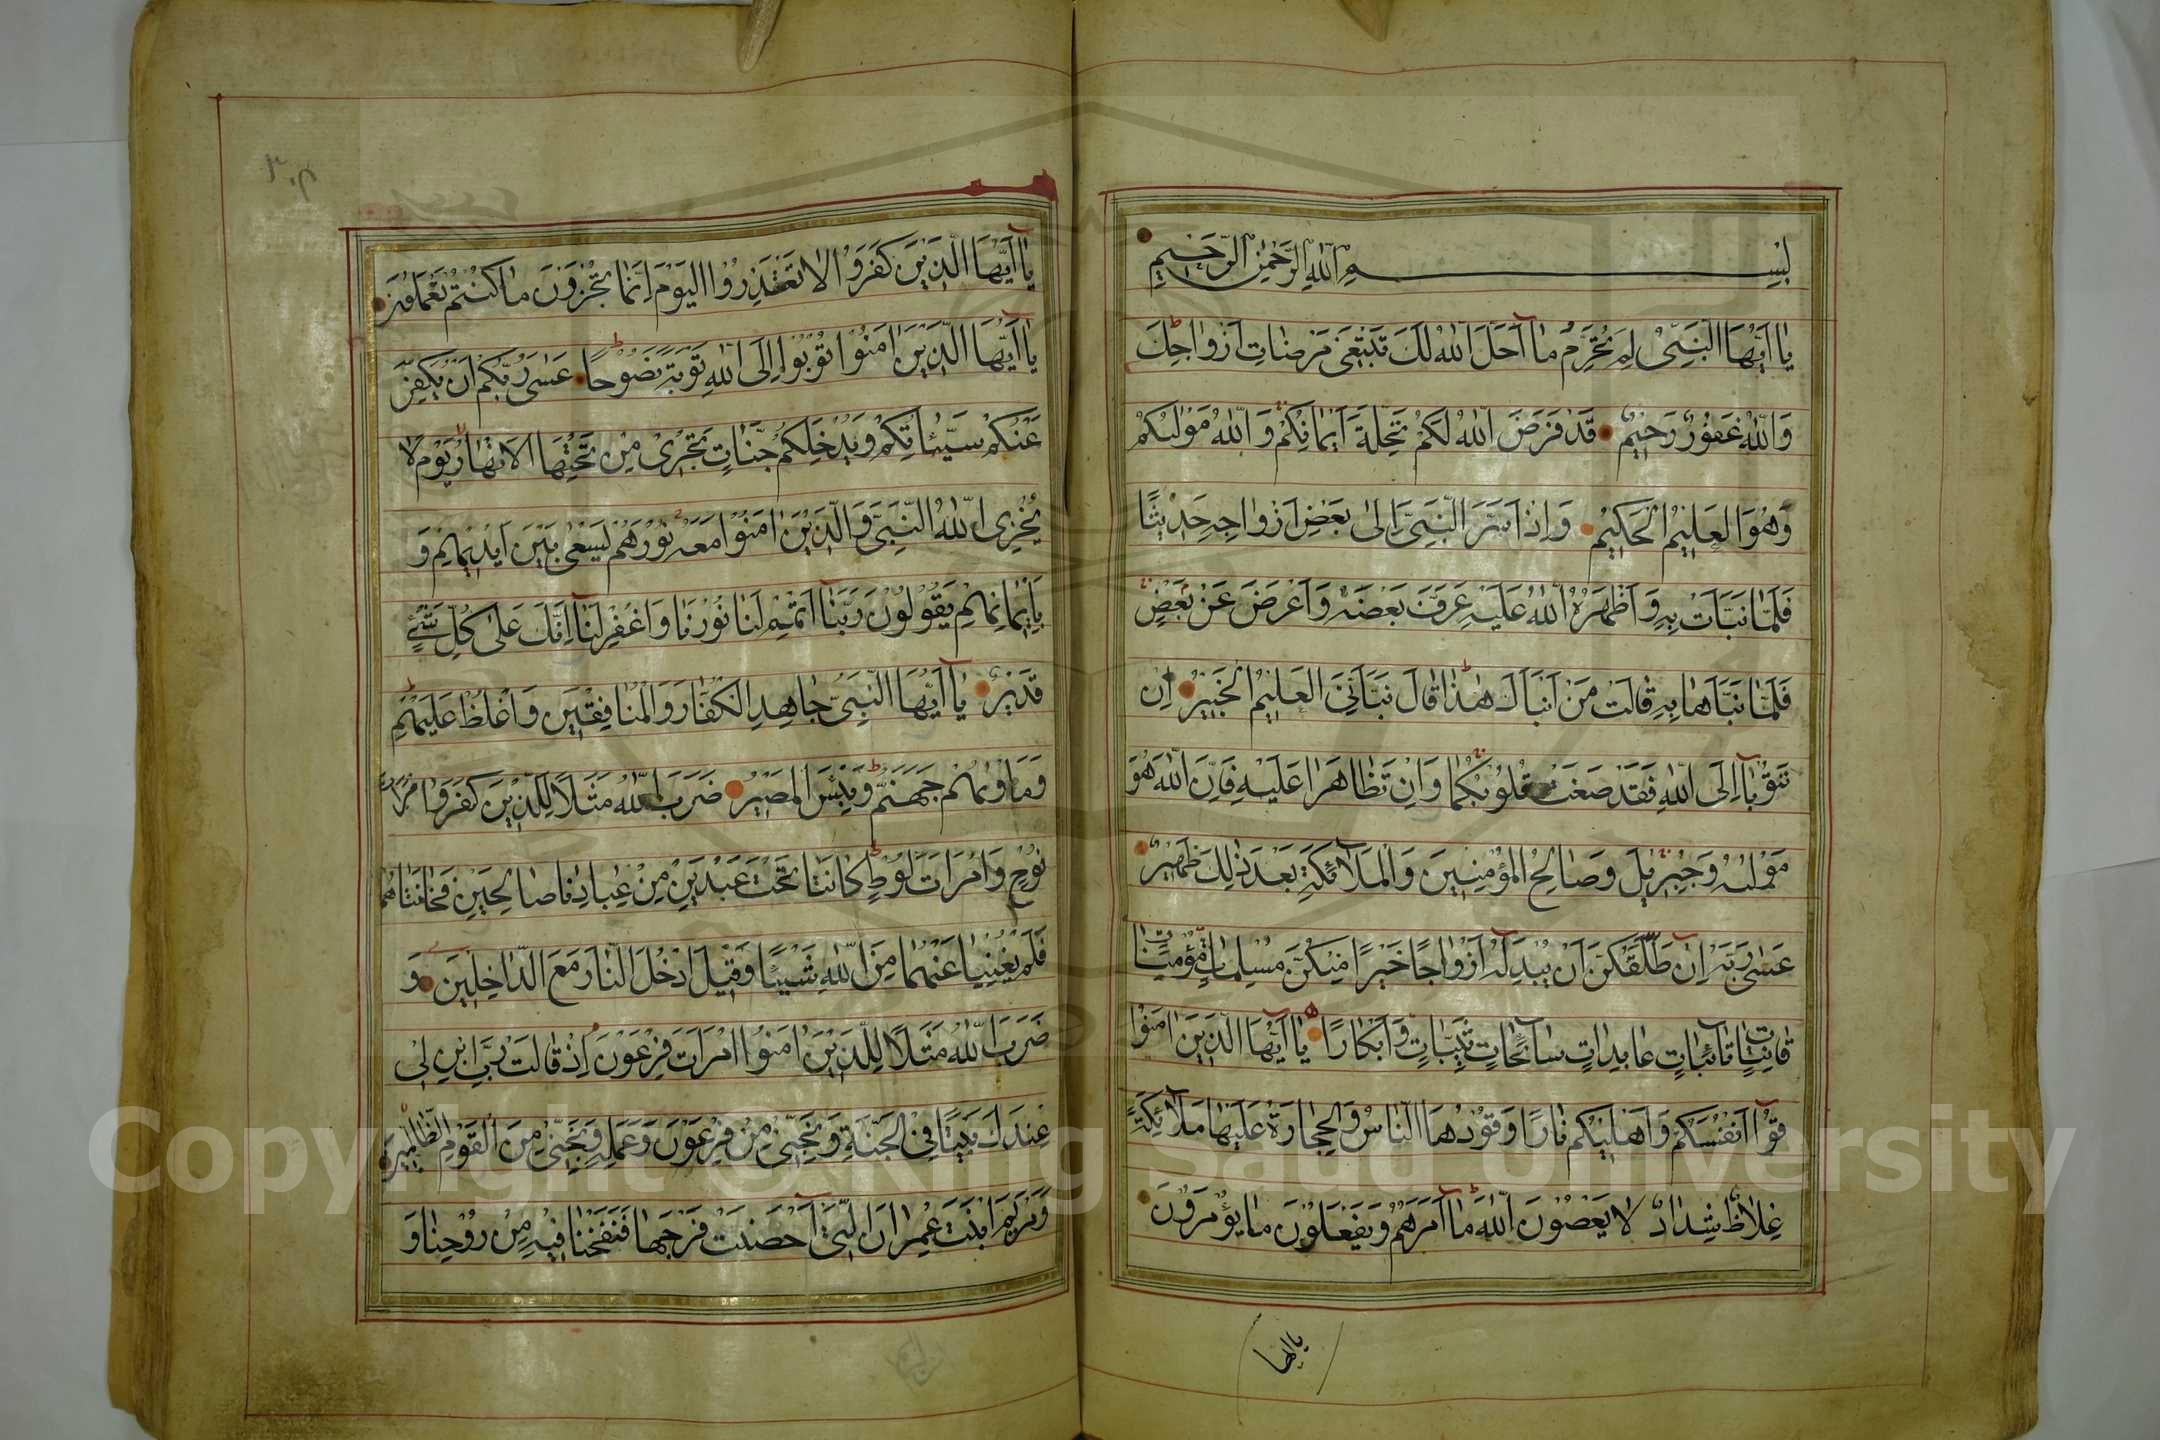 بِسْمِ اللّٰهِ الرَّحْمٰنِ الرَّحِيْمِ
يٰاۤ اَيُّهَا النَّبِىُّ لِمَ تُحَرِّمُ مٰاۤ اَحَلَّ اللّٰهُ لَكَ تَبْتَغِىْ مَرْضٰاتَ اَزْوٰاجِكَ
وَاللّٰهُ غَفُوْرٌ رَحِيْمٌ قَدْ فَرَضَ اللّٰهُ لَكُمْ تَحِلَّةَ اَيْمٰانِكُمْ وَاللّٰهُ مَوْلٰيكُمْ
وَهُوَ الْعَلِيْمُ الْحَكِيْمُ وَاِذْ اَسَرَّ النَّبِىُّ اِلىٰ بَعْضِ اَزْوٰاجِهِ حَدِيْثًا
فَلَمّٰا نَبَّاَتْ بِهِ وَاَظْهَرَهُ اللّٰهُ عَلَيْهِ عَرَّفَ بَعْضَهُ وَاَعْرَضَ عَنْ بَعْضٍ
فَلَمّٰا نَبَّاَهٰا بِهِ قٰالَتْ مَنْ اَنْبَاَكَ هٰذٰا قٰالَ نَبَّاَنِىَ الْعَلِيْمُ الْخَبِيْرُ اِنْ
تَتُوْبٰاۤ اِلَى اللّٰهِ فَقَدْ صَغَتْ قُلُوْبُكُمٰا وَاِنْ تَظٰاهَرٰا عَلَيْهِ فَاِنَّ اللّٰهَ هُوَ
مَوْلٰيهُ وَجِبْرِيْلُ وَصٰالِحُ الْمُؤْمِنِيْنَ وَالْمَلٰاۤئِكَةُ بَعْدَ ذٰلِكَ ظَهِيْرٌ
عَسٰى رَبُّهُ اِنْ طَلَّقَكُنَّ اَنْ يُبْدِلَهُ اَزْوٰاجًا خَيْرًا مِنْكُنَّ مُسْلِمٰاتٍ مُؤْمِنٰاتٍ
قٰانِتٰاتٍ تٰاۤئِبٰاتٍ عٰابِدٰاتٍ سٰاۤئِحٰاتٍ ثَيِّبٰاتٍ وَاَبْكٰارًا يٰاۤ اَيُّهَا الَّذِيْنَ اٰمَنُوْا
قُوْاۤ اَنْفُسَكُمْ وَاَهْلِيْكُمْ نٰارًا وَقُوْدُهَا النّٰاسُ وَالْحِجٰارَةُ عَلَيْهٰا مَلٰاۤئِكَةٌ
غِلٰاظٌ شِدٰادٌ لٰا يَعْصُوْنَ اللّٰهَ مٰاۤ اَمَرَهُمْ وَيَفْعَلُوْنَ مٰا يُؤْمَرُوْنَ
يا ايها
يٰاۤ اَيُّهَا الَّذِيْنَ كَفَرُوْا لٰا تَعْتَذِرُوا الْيَوْمَ اِنَّمٰا تُجْزَوْنَ مٰا كُنْتُمْ تَعْمَلُوْنَ
يٰاۤ اَيُّهَا الَّذِيْنَ اٰمَنُوْا تُوْبُوْا اِلَى اللّٰهِ تَوْبَةً نَصُوْحًا عَسٰى رَبُّكُمْ اَنْ يُكَفِّرَ
عَنْكُمْ سَيِّئٰاتِكُمْ وَيُدْخِلَكُمْ جَنّٰاتٍ تَجْرِىْ مِنْ تَحْتِهَا الْاَنْهٰارُ يَوْمَ لٰا
يُخْزِى اللّٰهُ النَّبِىَّ وَالَّذِيْنَ اٰمَنُوْا مَعَهُ نُوْرُهُمْ يَسْعٰى بَيْنَ اَيْدِيْهِمْ وَ
بِاَيْمٰانِهِمْ يَقُوْلُوْنَ رَبَّنٰا اَتْمِمْ لَنٰا نُوْرَنٰا وَاغْفِرْ لَنٰا اِنَّكَ عَلىٰ كُلِّ شَىْءٍ
قَدِيْرٌ يٰاۤ اَيُّهَا النَّبِىُّ جٰاهِدِ الْكُفّٰارَ وَالْمُنٰافِقِيْنَ وَاغْلُظْ عَلَيْهِمْ
وَمَاْوٰيهُمْ جَهَنَّمُ وَبِئْسَ الْمَصِيْرُ ضَرَبَ اللّٰهُ مَثَلًا لِلَّذِيْنَ كَفَرُوا امْرَاَتَ
نُوْحٍ وَامْرَاَتَ لُوْطٍ كٰانَتٰا تَحْتَ عَبْدَيْنِ مِنْ عِبٰادِنٰا صٰالِحَيْنِ فَخٰانَتٰاهُمٰا
فَلَمْ يُغْنِيٰا عَنْهُمٰا مِنَ اللّٰهِ شَيْئًا وَقِيْلَ ادْخُلَا النّٰارَ مَعَ الدّٰاخِلِيْنَ وَ
ضَرَبَ اللّٰهُ مَثَلًا لِلَّذِيْنَ اٰمَنُوا امْرَاَتَ فِرْعَوْنَ اِذْ قٰالَتْ رَبِّ ابْنِ لِىْ
عِنْدَكَ بَيْتًا فِى الْجَنَّةِ وَنَجِّنِىْ مِنْ فِرْعَوْنَ وَعَمَلِهِ وَنَجِّنِىْ مِنَ الْقَوْمِ الظّٰالِمِيْنَ
وَمَرْيَمَ ابْنَتَ عِمْرٰانَ الَّتِىْۤ اَحْصَنَتْ فَرْجَهٰا فَنَفَخْنٰا فِيْهِ مِنْ رُوْحِنٰا وَ
Copyright © King Saud University